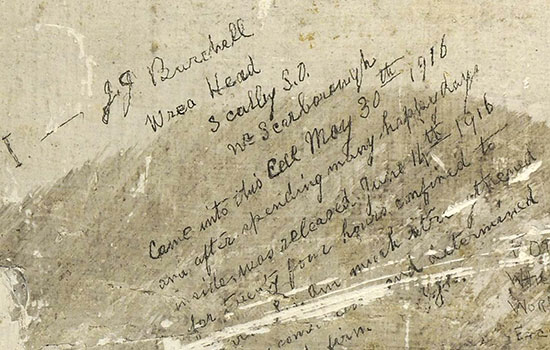 I — J.J. Burchell
Wrea Head
Scalby S.O.
Nr Scarborough
Came into this Cell May 30th 1916
and after spending many happy days
inside was released June 14th 1916
for twenty four hours confined to
am much strengthened
and determined
firm
WOR